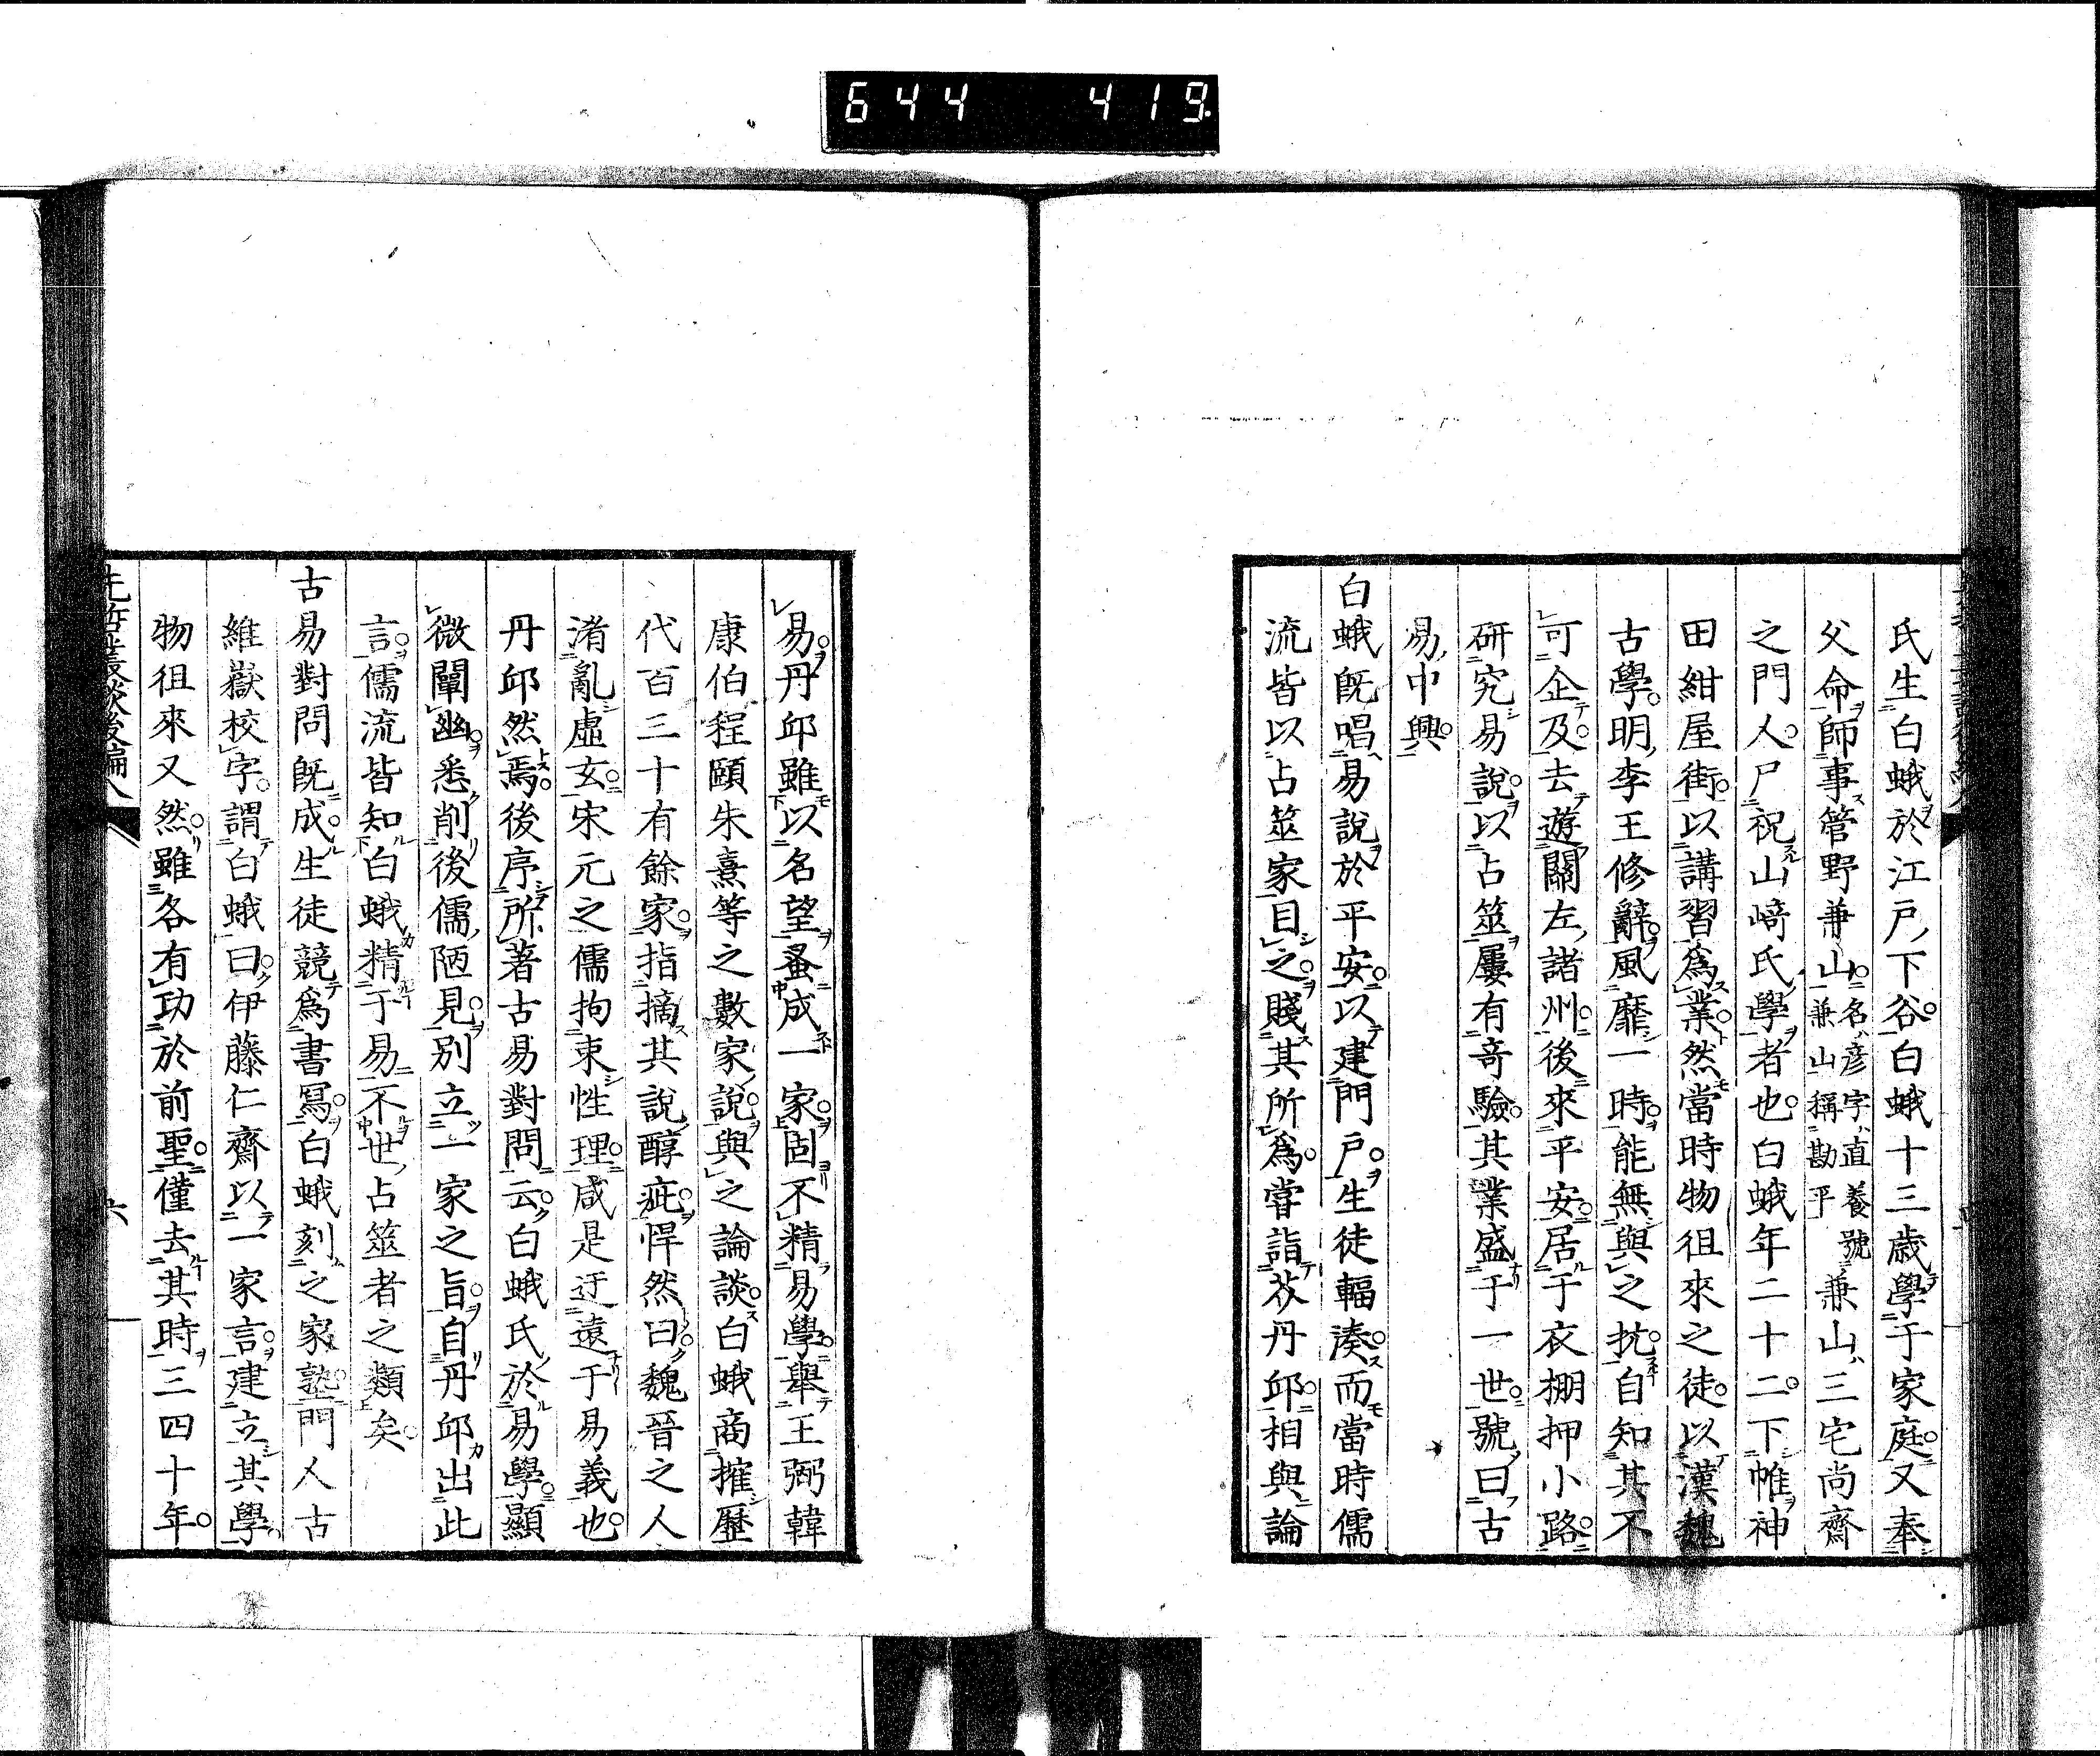 644 419
氏生白蛾於江戸下谷白蛾十三歳學于家庭又奉
父命師事管野兼山名彦字直養號兼山稱勘平兼山三宅尚齋
之門人尸祝山崎氏學者也白蛾年二十二下帷神
田紺屋街以講習爲業然當時物徂來之徒以漢魏
古學明李王修辭風靡一時能無與之抗自知其不
可企及去遊關左諸州後來平安居于衣棚押小路
研究易說以占筮屢有奇驗其業盛于一世號曰古
易中興
白蛾既唱易說於平安以建門戸生徒輻湊而當時儒
流皆以占筮家目之賤其所爲嘗詣芥丹邱相與論
易丹邱雖以名望蚤成一家固不精易學舉王弼韓
康伯程頤朱熹等之數家說與之論談白蛾商搉歷
代百三十有餘家指摘其說醇疵悍然曰魏晉之人
淆亂虛玄宋元之儒拘束性理咸是迂遠于易義也
丹邱然焉後序所著古易對問云白蛾氏於易學顯
微闡幽悉削後儒陋見別立一家之旨自丹邱出此
言儒流皆知白蛾精于易不世占筮者之類矣
古易對問既成生徒競爲書寫白蛾刻之家塾門人古
維嶽校字謂白蛾曰伊藤仁齋以一家言建立其學
物徂來又然雖各有功於前聖僅去其時三四十年
先哲叢談後編八
六